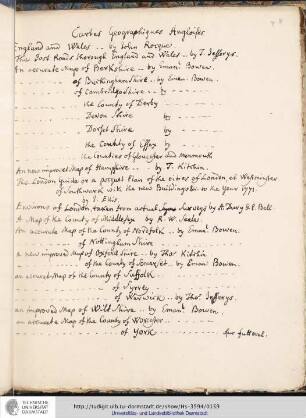 Cartes Geographiques Angloises
England and Wales .. by John Rocque.
The Post Roads thorough England and Wales .. by T. Jefferys.
An accurate Map of Berkshire .. by Eman: Bowen.
of Buckinghamshire .. by Eman: Bowen.
of Cambridgshire .. by
the County of Derby
Devon Shire by
Dorset Shire by
the County of Essex by
the Counties of Gloucester and Monmouth
An new improved Map of Hampshire .. by T. Kitchin.
The London Guide or a pocket Plan of the cities of London et Westminster
of Southwark with the new Buildings to the Year 1771
by J. Ellis.
Environs of London taken from actual Surveys by A. Dury & P. Bell
A Map of the County of Middlesex by R. W. Seale.
An accurate Map of the County of Nordfolk .. by Eman: Bowen.
of Nottingham Shire
a new improved Map of Oxford Shire .. by Tho: Kitchin
of the County of Somerset .. by Eman: Bowen.
an accurate Map of the County of Suffolk
of Surrey
of Warwick .. by Tho: Jefferys.
an improved Map of Wilt Shire .. by Eman: Bowen.
an accurate Map of the County of Worcester
of York
TECHNISCHE
UNIVERSITÄT
DARMSTADT
http://tudigit.ulb.tu-darmstadt.de/show/Hs-3594/0159
Universitäts- und Landesbibliothek Darmstadt